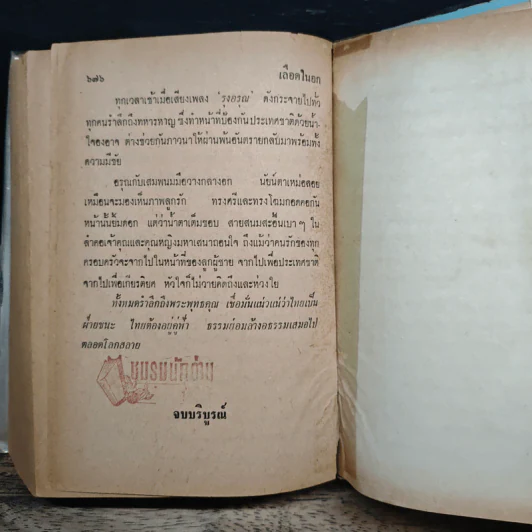 ๖๗๖
เลือดในอก
ทุกเวลาเช้าเมื่อเสียงเพลง 'รุ่งอรุณ' ดังกระจายไปทั่ว
ทุกคนรำลึกถึงทหารหาญ ซึ่งทำหน้าที่ป้องกันประเทศชาติด้วยน้ำ-
ใจองอาจ ต่างช่วยกันภาวนาให้ผ่านพ้นอันตรายกลับมาพร้อมทั้ง
ความมีชัย
อรุณกับเสมพนมมือวางกลางอก นัยน์ตาเหม่อลอย
เหมือนจะมองเห็นภาพลูกรัก ทรงศรีและทรงโฉมกอดคอกัน
หน้านั้นยิ้มดอก แต่ว่าน้ำตาเต็มขอบ สายสนมสะอื้นเบา ๆ ใน
ลำคอเจ้าคุณและคุณหญิงมหาเสนาถอนใจ ถึงแม้ว่าคนรักของทุก
ครอบครัวจะจากไปในหน้าที่ของลูกผู้ชาย จากไปเพื่อประเทศชาติ
จากไปเพื่อเกียรติยศ หัวใจก็ไม่วายคิดถึงและห่วงใย
ทั้งหมดรำลึกถึงพระพุทธคุณ เชื่อมั่นแน่วแน่ว่าไทยเป็น
ฝ่ายชนะ ไทยต้องอยู่คู่ฟ้า ธรรมก่อมล้างอธรรมเสมอไป
ตลอดโลกสลาย
ชมรมนักอ่าน
จบบริบูรณ์